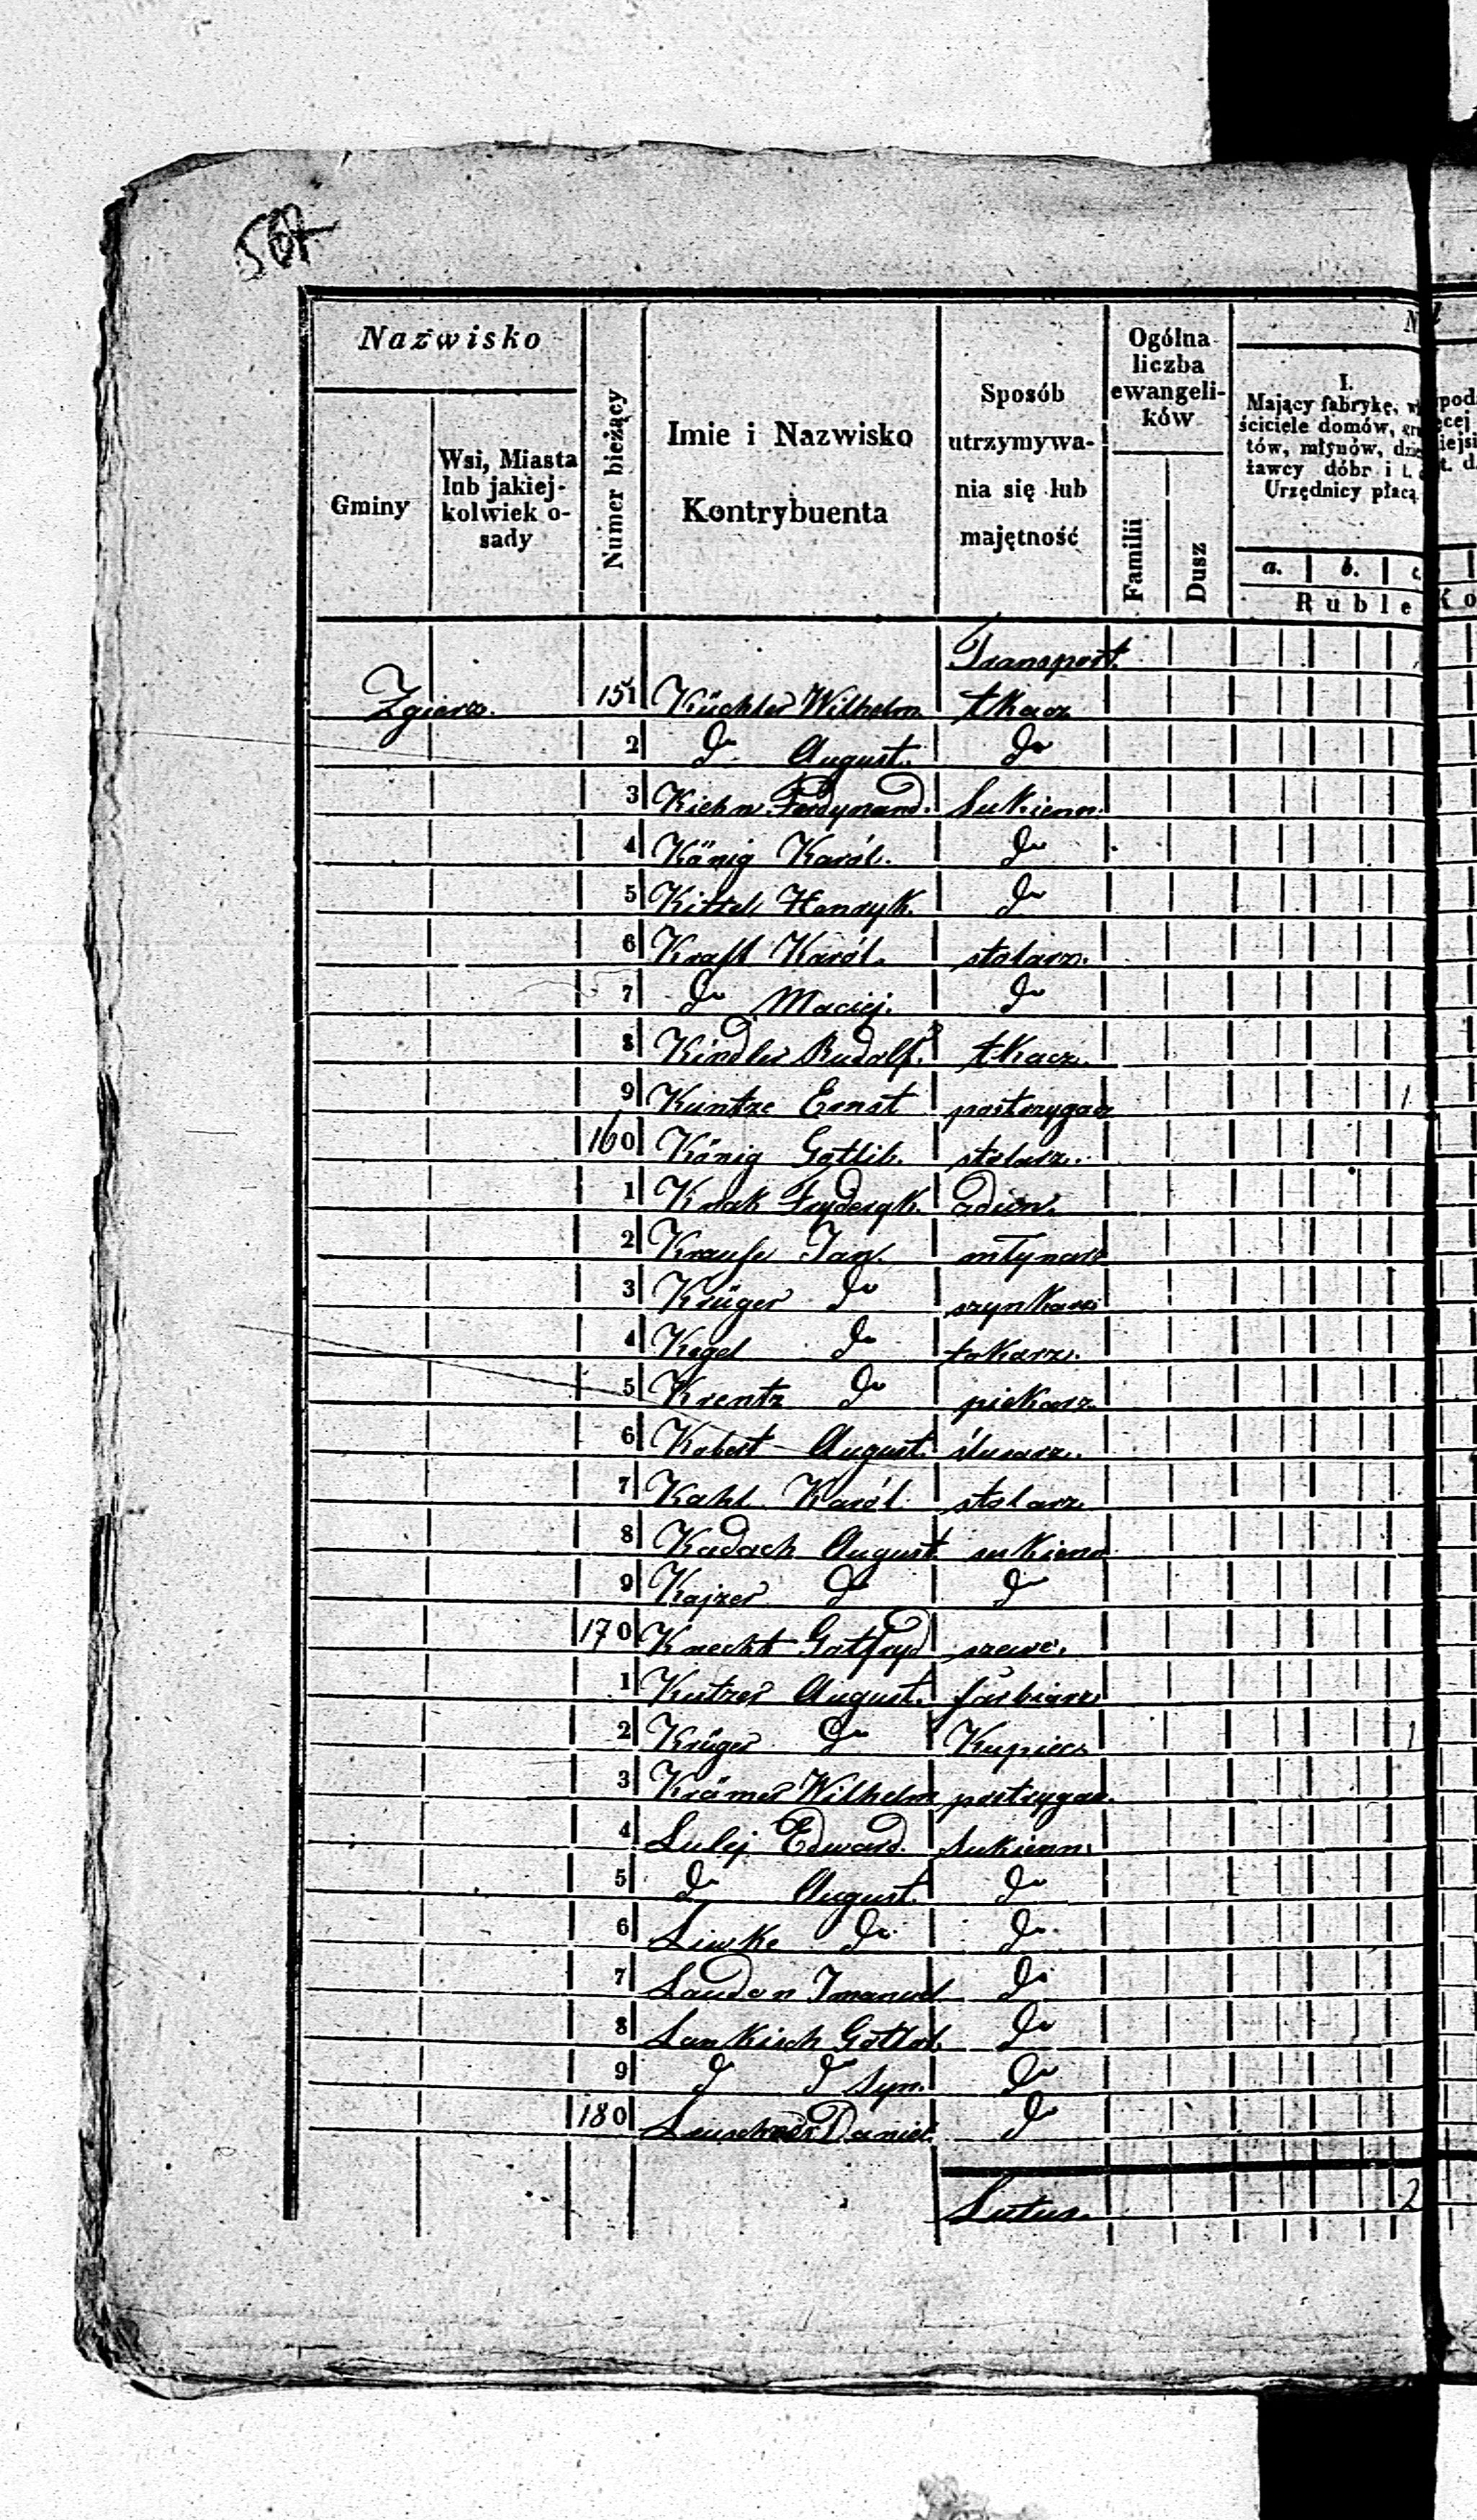 567
Nazwisko
Gminy
Wsi, Miasta lub jakiej-kolwiek o-sady
Numer bieżący
Imie i Nazwisko Kontrybuenta
Sposób utrzymywa-nia się lub majętność
Ogólna liczba ewangeli-ków
Familii
Dusz
I.
Mający fabrykę,
ściciele domów,
tów, młynów,
żawcy dóbr i t.
Urzędnicy płacą
a. b. c.
Ruble
Transport.
Zgierz. 151 Küchler Wilhelm tkacz
2 do August. do
3 Kiehn Ferdynand. Sukienn.
4 König Karól. do
5 Kittel Henryk. do
6 Kraft Karól. stolarz.
7 do Maciej. do
8 Kindler Rudolf. tkacz.
9 Kuntze Ernst postrzygacz 1
160 König Gotlib. stolarz.
1 Knak Fryderyk.
2 Krause Jan. młynarz
3 Krüger do szynkarz
4 Kegel do tokarz.
5 Krentz do piekarz.
6 August. ślusarz.
7 Kahl Karól. stolarz
8 Kadach August sukienn
9 Kajzer do do
170 Knecht Gotfryd szewc.
1 Kutzer August. farbiarz
2 Krüger do Kupiec 1
3 Krämer Wilhelm postrzygacz.
4 Lulej Edward. Sukienn.
5 do August. do
6 Liwke do do
7 Laudon Imanuel do
8 Lankisch Gottlob. do
9 do do syn. do
180 Leuschner Daniel. do
Latus. 2